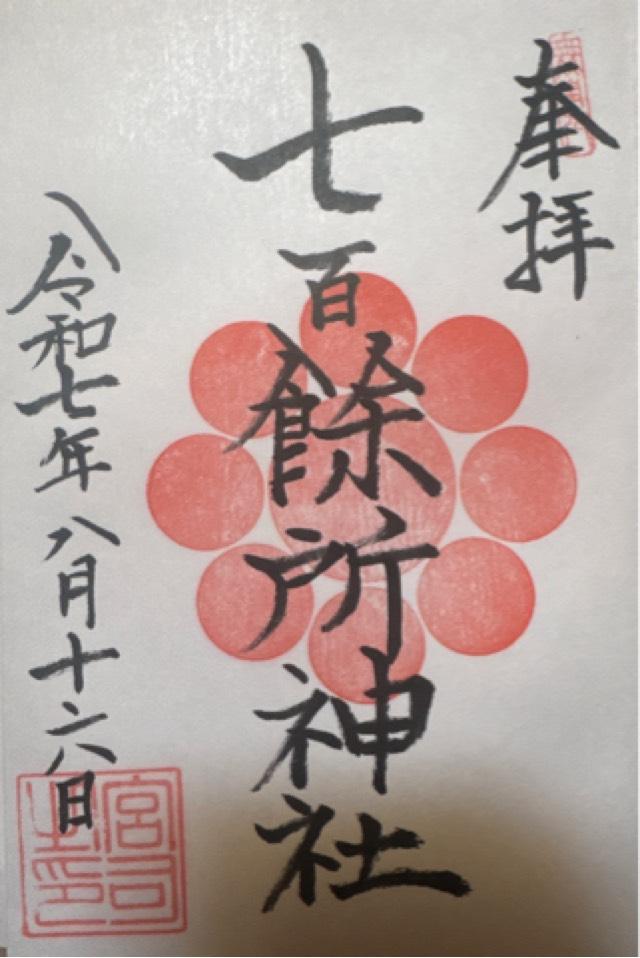 奉拝
七百餘所神社
令和七年八月十六日
宮司之印